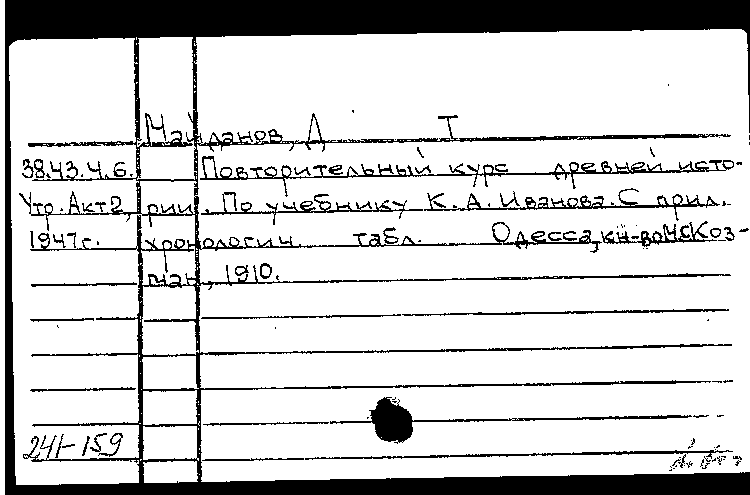 Майданов, Д Т
38.43.4.6. Повторительный курс древней исто-
Утр. Акт 2, рии. По учебнику К. А. Иванова. С прил.
1947г. хронологич. табл. Одесса, кн-во М.С.Коз-
ман, 1910.
241-159